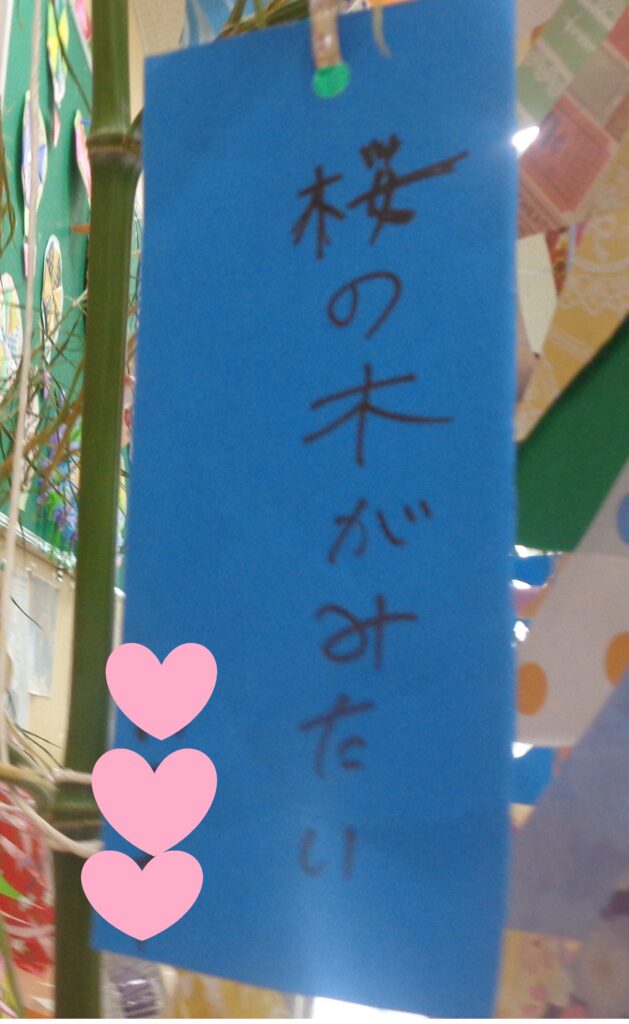 桜の木がみたい